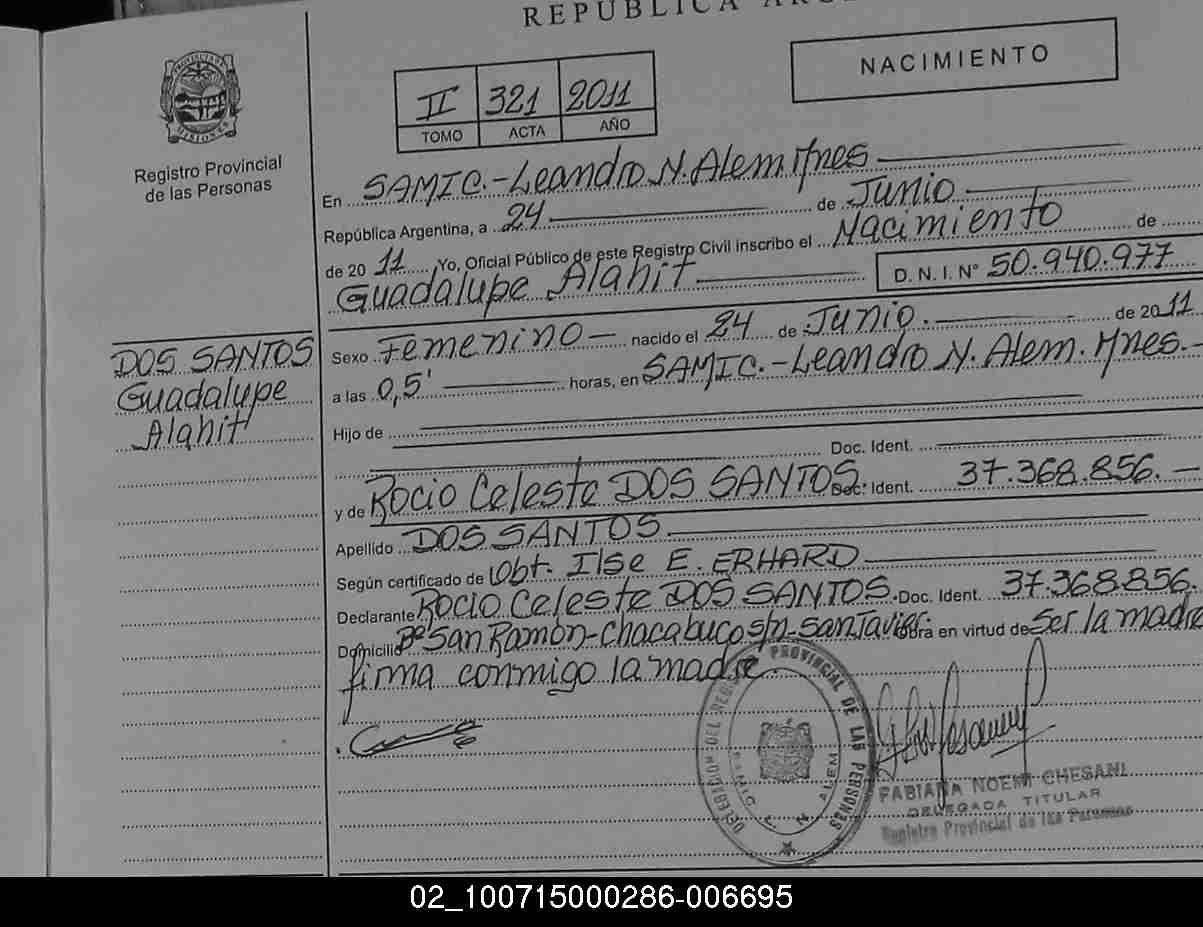 REPÚBLICA
NACIMIENTO
II 321 2011
TOMO ACTA AÑO
Registro Provincial
de las Personas
En SAMIC.-Leandro N. Alem Mnes
República Argentina, a 24 de Junio
de 20 11, Yo, Oficial Público de este Registro Civil inscribo el Nacimiento de
Guadalupe Alahit D.N.I. N° 50.940.977
DOS SANTOS
Guadalupe
Alahit
Sexo Femenino nacido el 24 de Junio. de 2011
a las 0,5' horas, en SAMIC.-Leandro N. Alem. Mnes.-
Hijo de
Doc. Ident.
y de Rocio Celeste DOS SANTOS. Doc. Ident. 37.368.856.-
Apellido DOS SANTOS
Según certificado de Obt. Ilse E. ERHARD
Declarante Rocio Celeste DOS SANTOS. Doc. Ident. 37.368.856.
Domicilio B° San Ramón-Chacabuco s/n-San Javier. Obra en virtud de Ser la madre
firma conmigo la madre.
PROVINCIAL DE LAS PERSONAS
FABIANA NOEMI CHESANI
DELEGADA TITULAR
Registro Provincial de las Personas
02_100715000286-006695